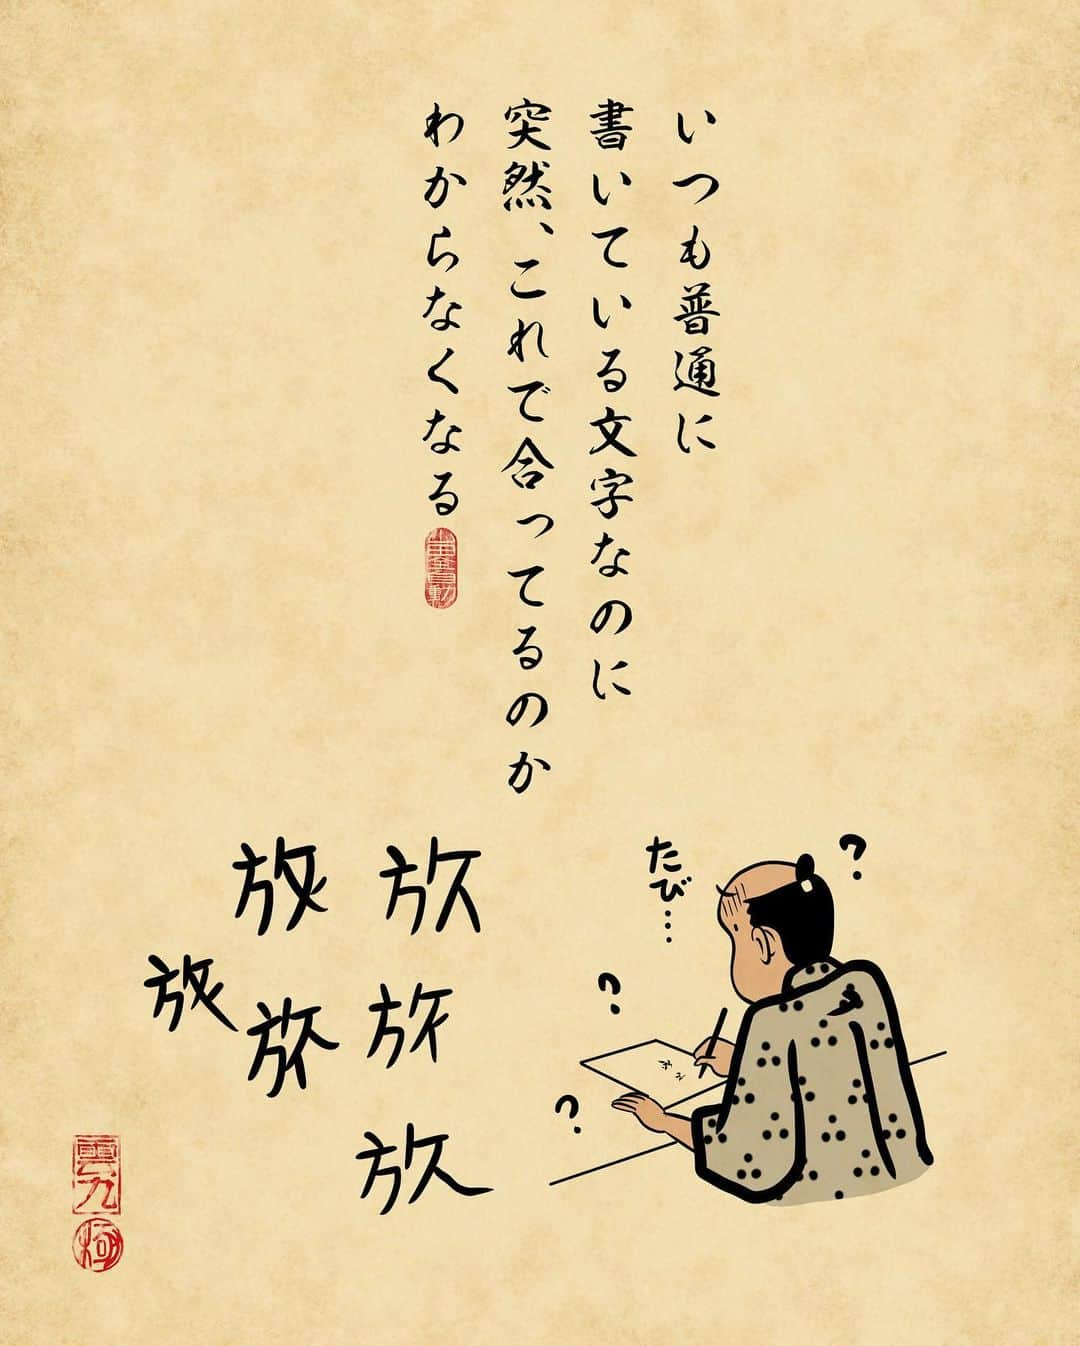 いつも普通に
書いている文字なのに
突然、これで合ってるのか
わからなくなる
たび…
?
?
?
雲九
極